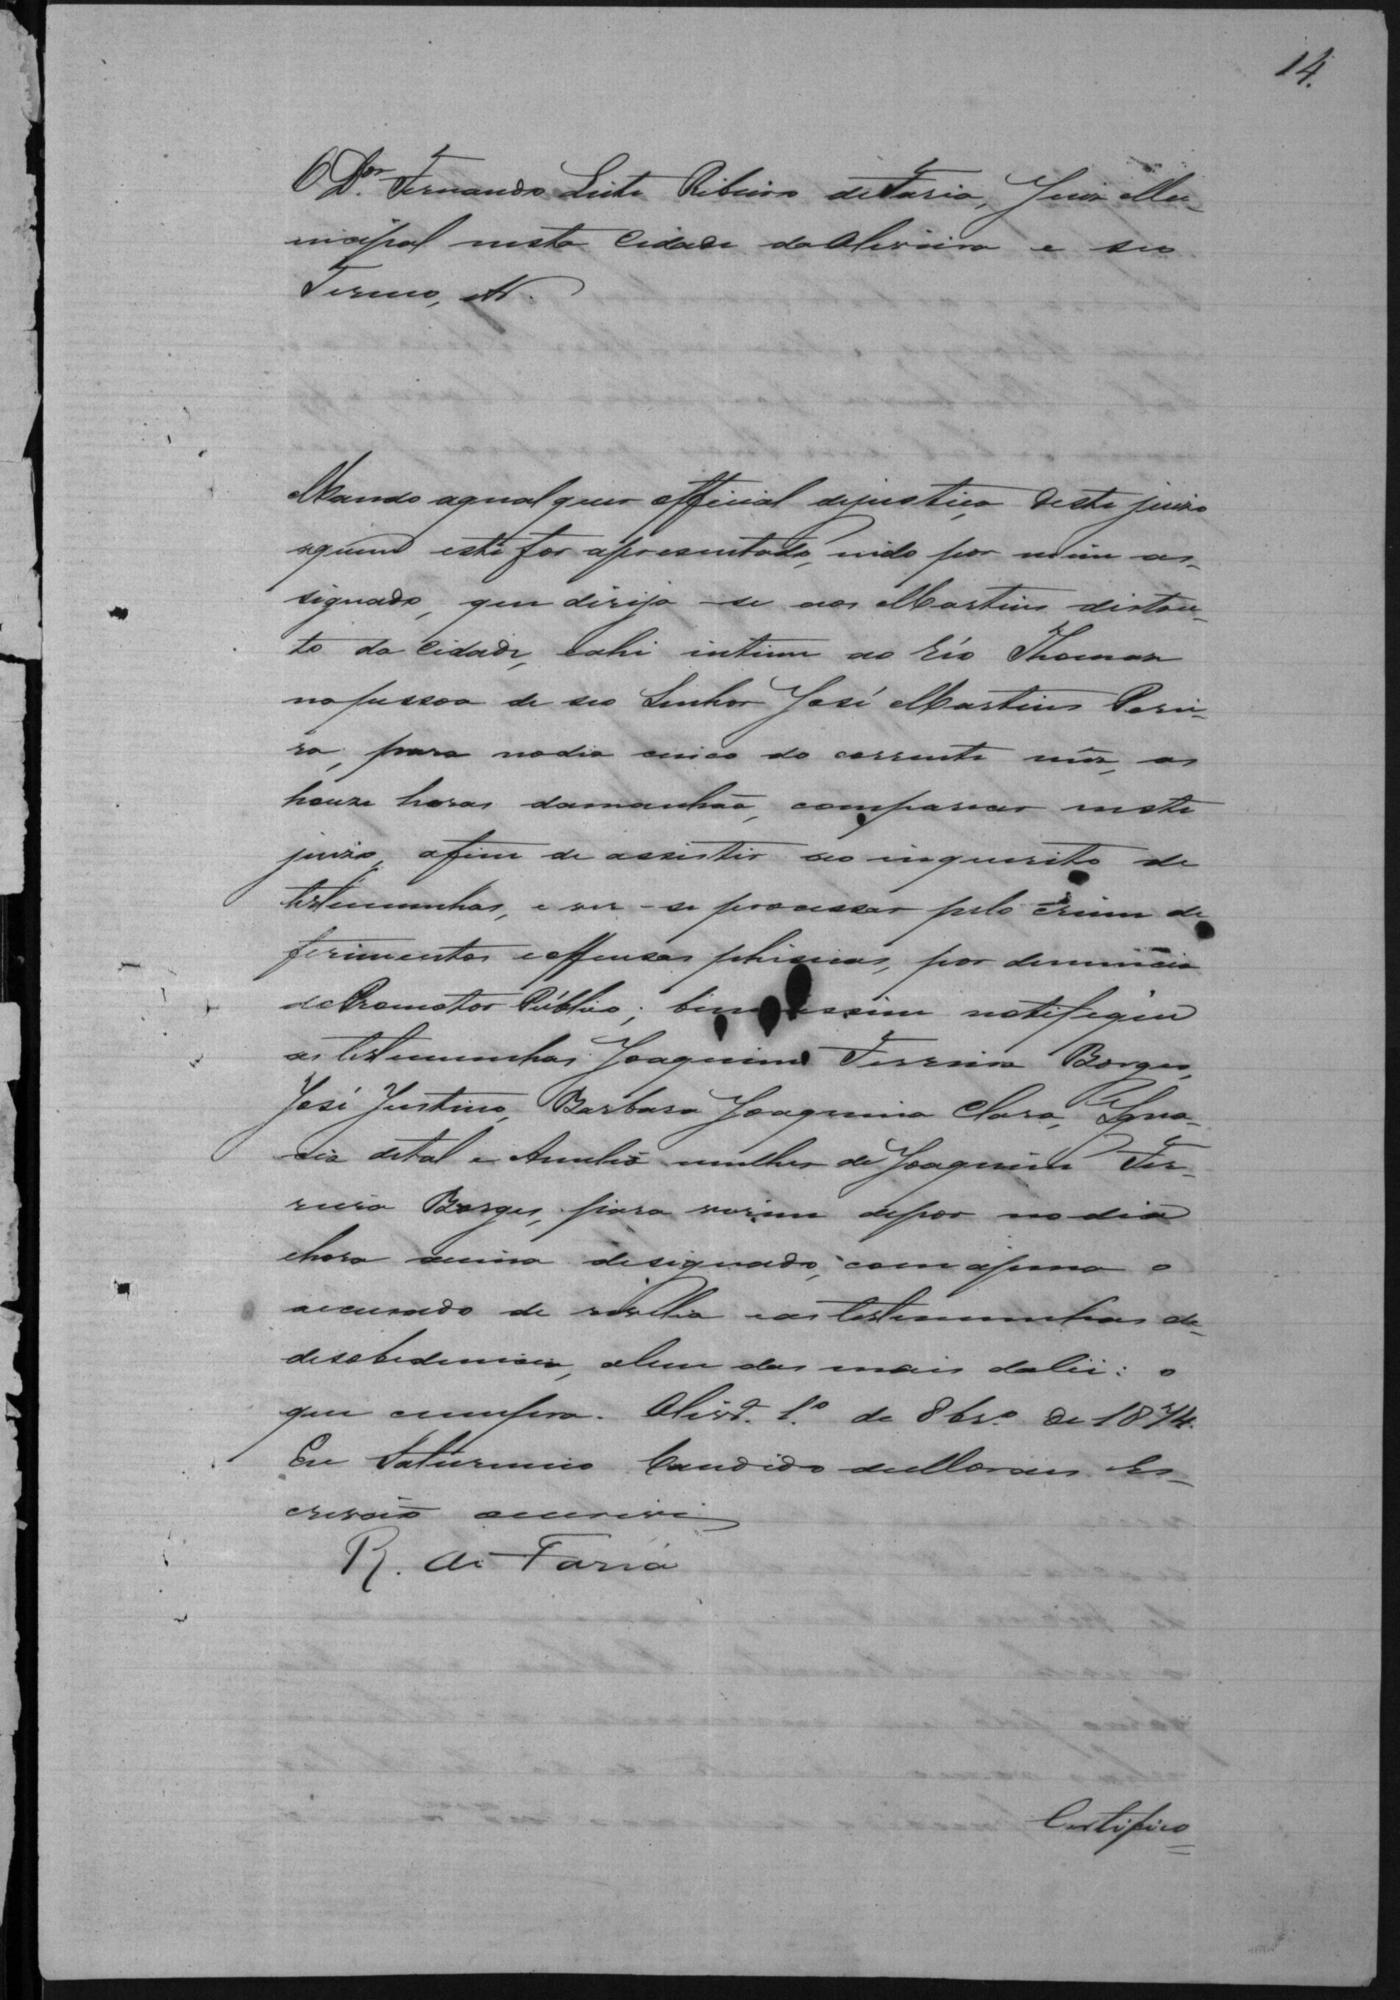 14.
O Dor. Fernando Leite Ribeiro de Faria, Juiz Mu-
nicipal nesta Cidade da Oliveira e seo
Termo, etc.
Mando aqualquer official dejustiça deste juizo
aquem este for apresentado, indo por mim as-
signado, que dirija-se aos Martins, distric-
to da Cidade, eahi intime ao réo Thomaz
napessoa de seo Senhor José Martins Perei-
ra, para nodia cinco do corrente mez, as
honze horas damanhãa, comparecer neste
juizo, afim de assistir ao inquerito de
testemunhas, e ver-se processar pelo crime de
ferimentos eoffensas phisicas, por denuncia
doPromotor Público; bem assim notifique
as testemunhas Joaquim Ferreira Borges,
José Justino, Barbara Joaquina Clara, Igna-
cia detal e Amelia mulher de Joaquim Fer-
reira Borges, para virem depor nodia
ehora acima designado, com apena o
accusado de revelia eas testemunhas de
desobediencia, alem das mais dalei: o
que cumpra. Olivra. 1.º de 8bro. de 1874.
Eu Saturnino Candido deMoraes Es-
crivão escrevi
R. de Faria
Certifico